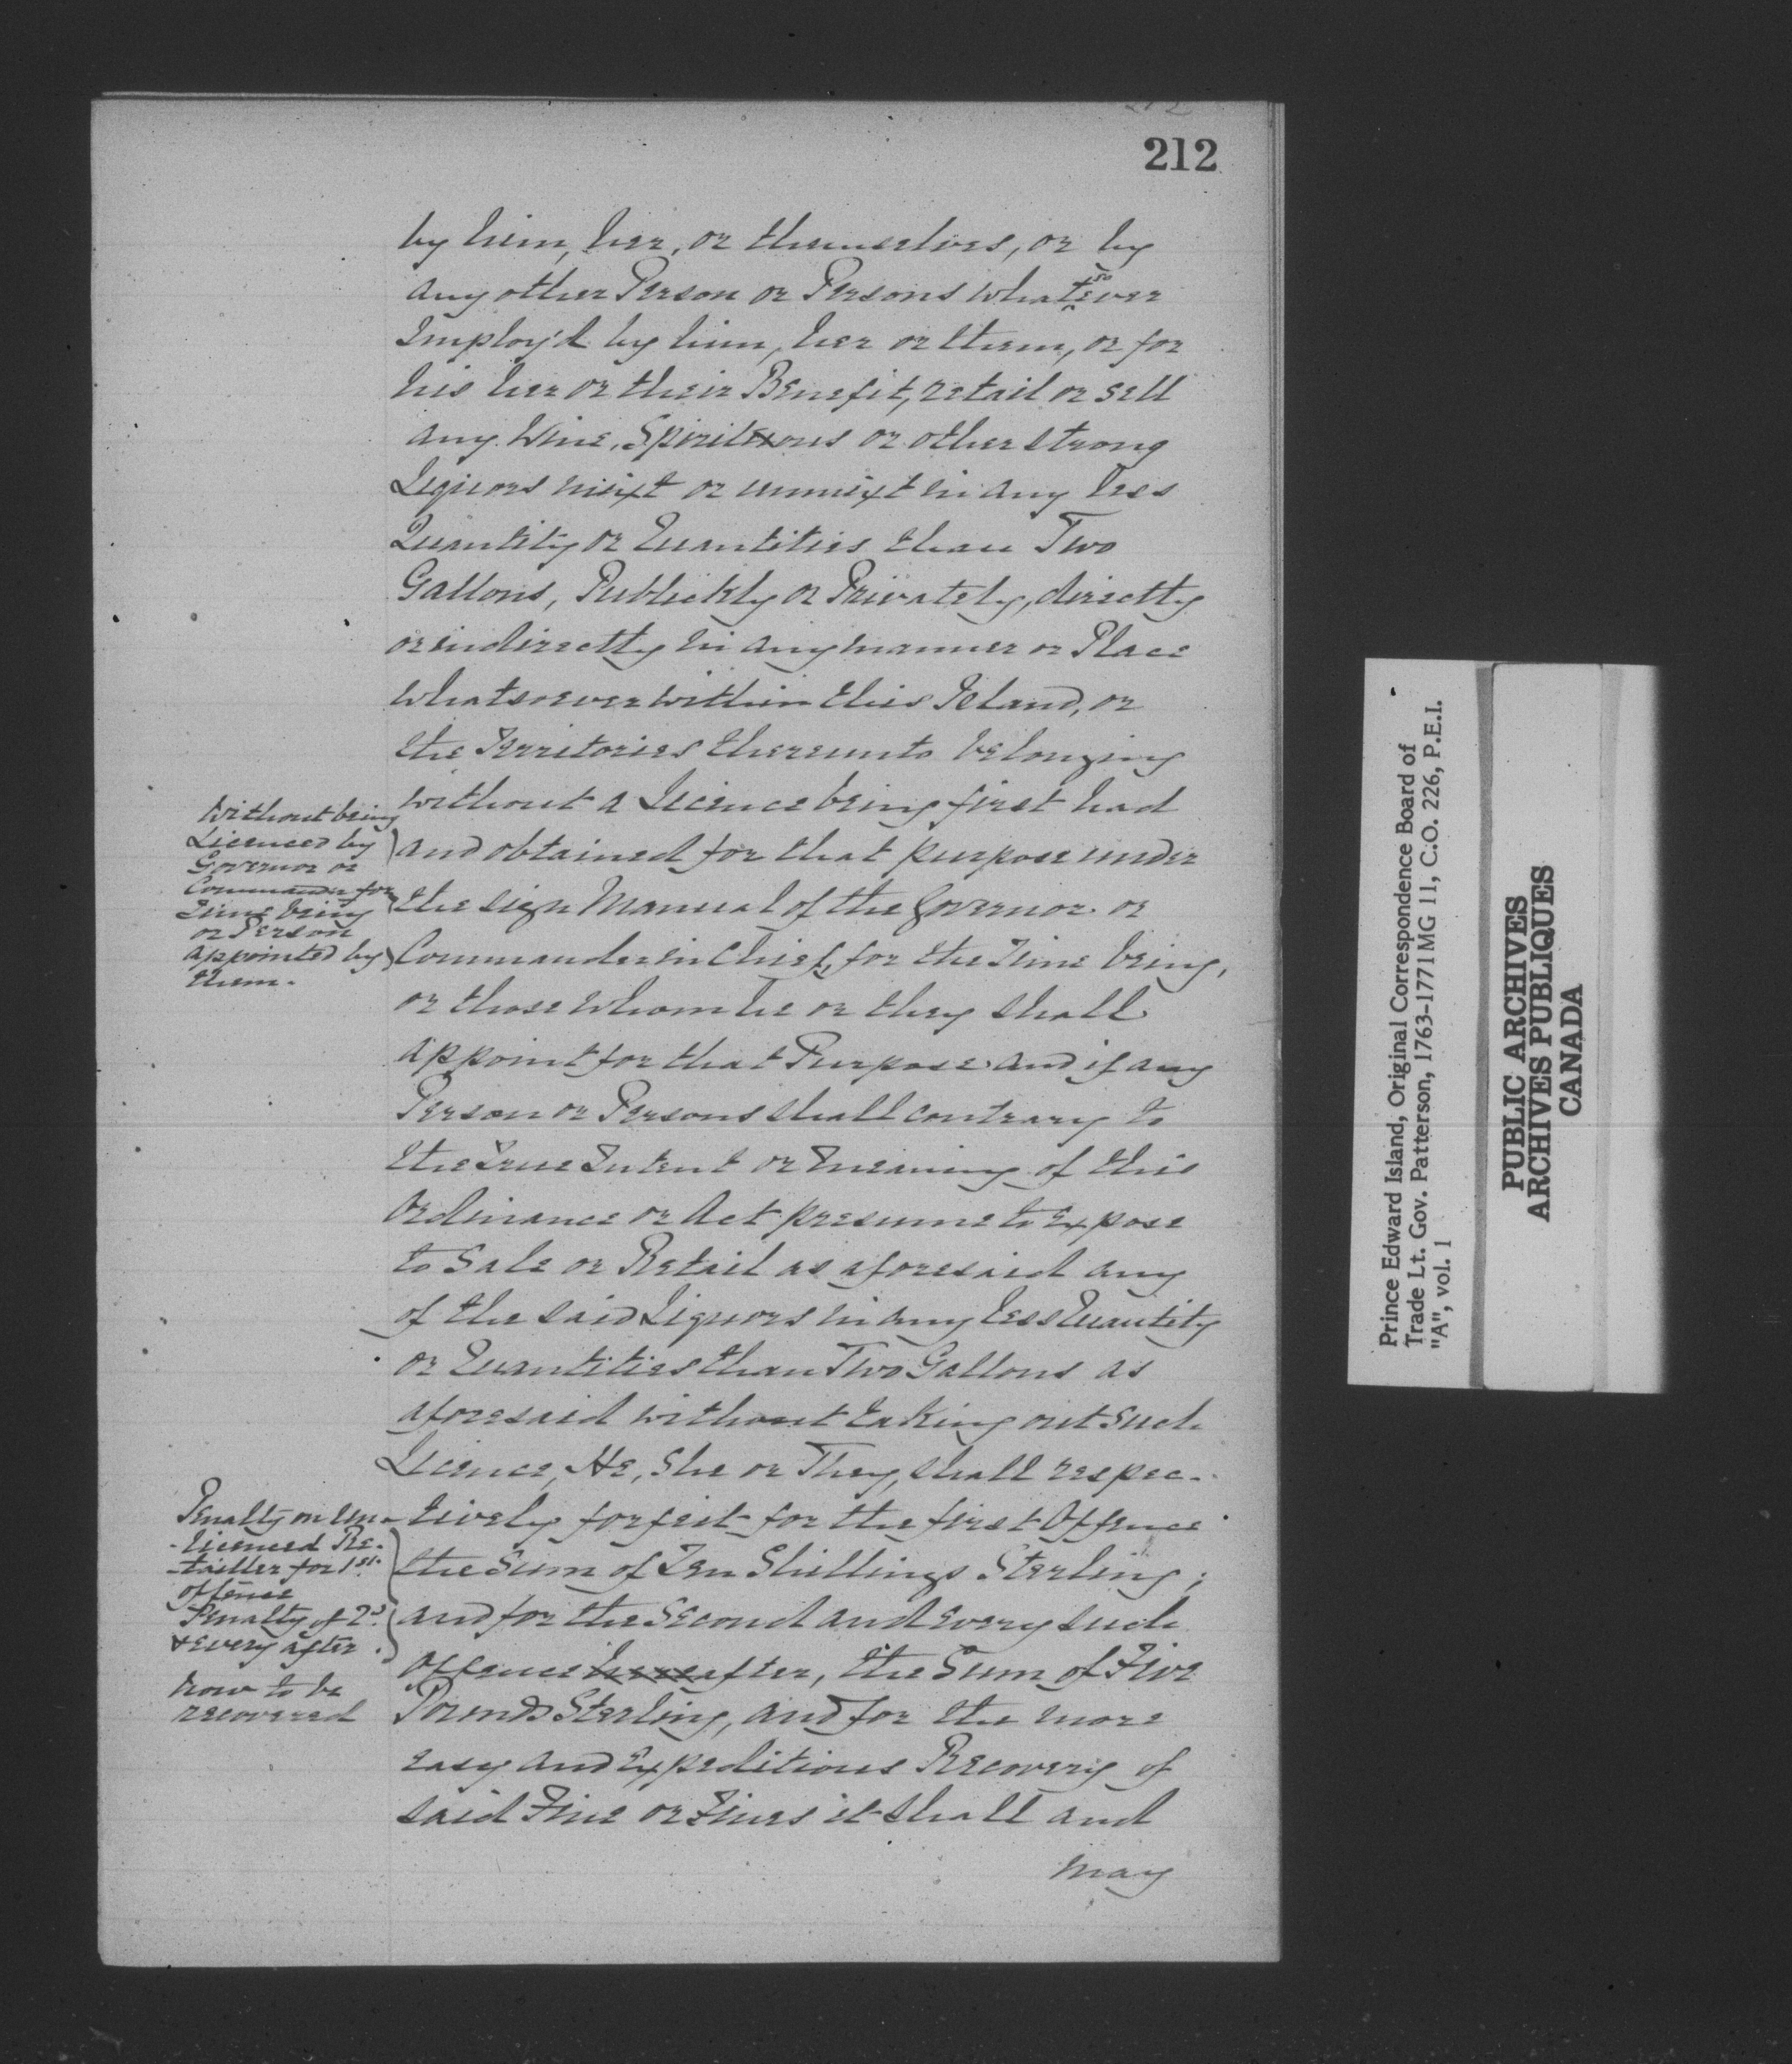 212
by him, her, or themselves, or by
any other Person or Persons whatsoever
Imploy'd by him, her or them, or for
his her or their Benefit, retail or sell
any Wine, Spirituous or other strong
Liquors mixt or unmixt in any less
Quantity or Quantities than Two
Gallons, Publickly or Privately, directly
or indirectly in any manner or Place
whatsoever within this Island, or
the Territories thereunto belonging
without a Licence being first had
and obtained for that purpose under
the sign Manual of the Governor or
Commander in Chief, for the Time being,
or those whom he or they shall
appoint for that Purpose and if any
Person or Persons shall contrary to
the True Intent or Meaning of this
Ordinance or Act presume to Expose
to Sale or Retail as aforesaid any
of the said Liquors in any less Quantity
or Quantities than Two Gallons as
aforesaid without taking out such
Licence, He, She or They, shall respec-
tively forfeit for the first Offence
the Sum of Ten Shillings Sterling;
and for the Second and Every such
Offence hereafter, the Sum of Five
Pounds Sterling, and for the more
easy and Expeditious Recovery of
said Fine or Fines it shall and
may
Without being
Licenced by
Governor or
Commander for
Time being
or Person
appointed by
them.
Penalty on Un-
-licenced Re-
-tailler for 1st.
offence
Penalty of 2d.
& Every after.
how to be
recovered
Prince Edward Island, Original Correspondence Board of
Trade Lt. Gov. Patterson, 1763-1771 MG 11, C.O. 226, P.E.I.
"A", vol. 1
PUBLIC ARCHIVES
ARCHIVES PUBLIQUES
CANADA